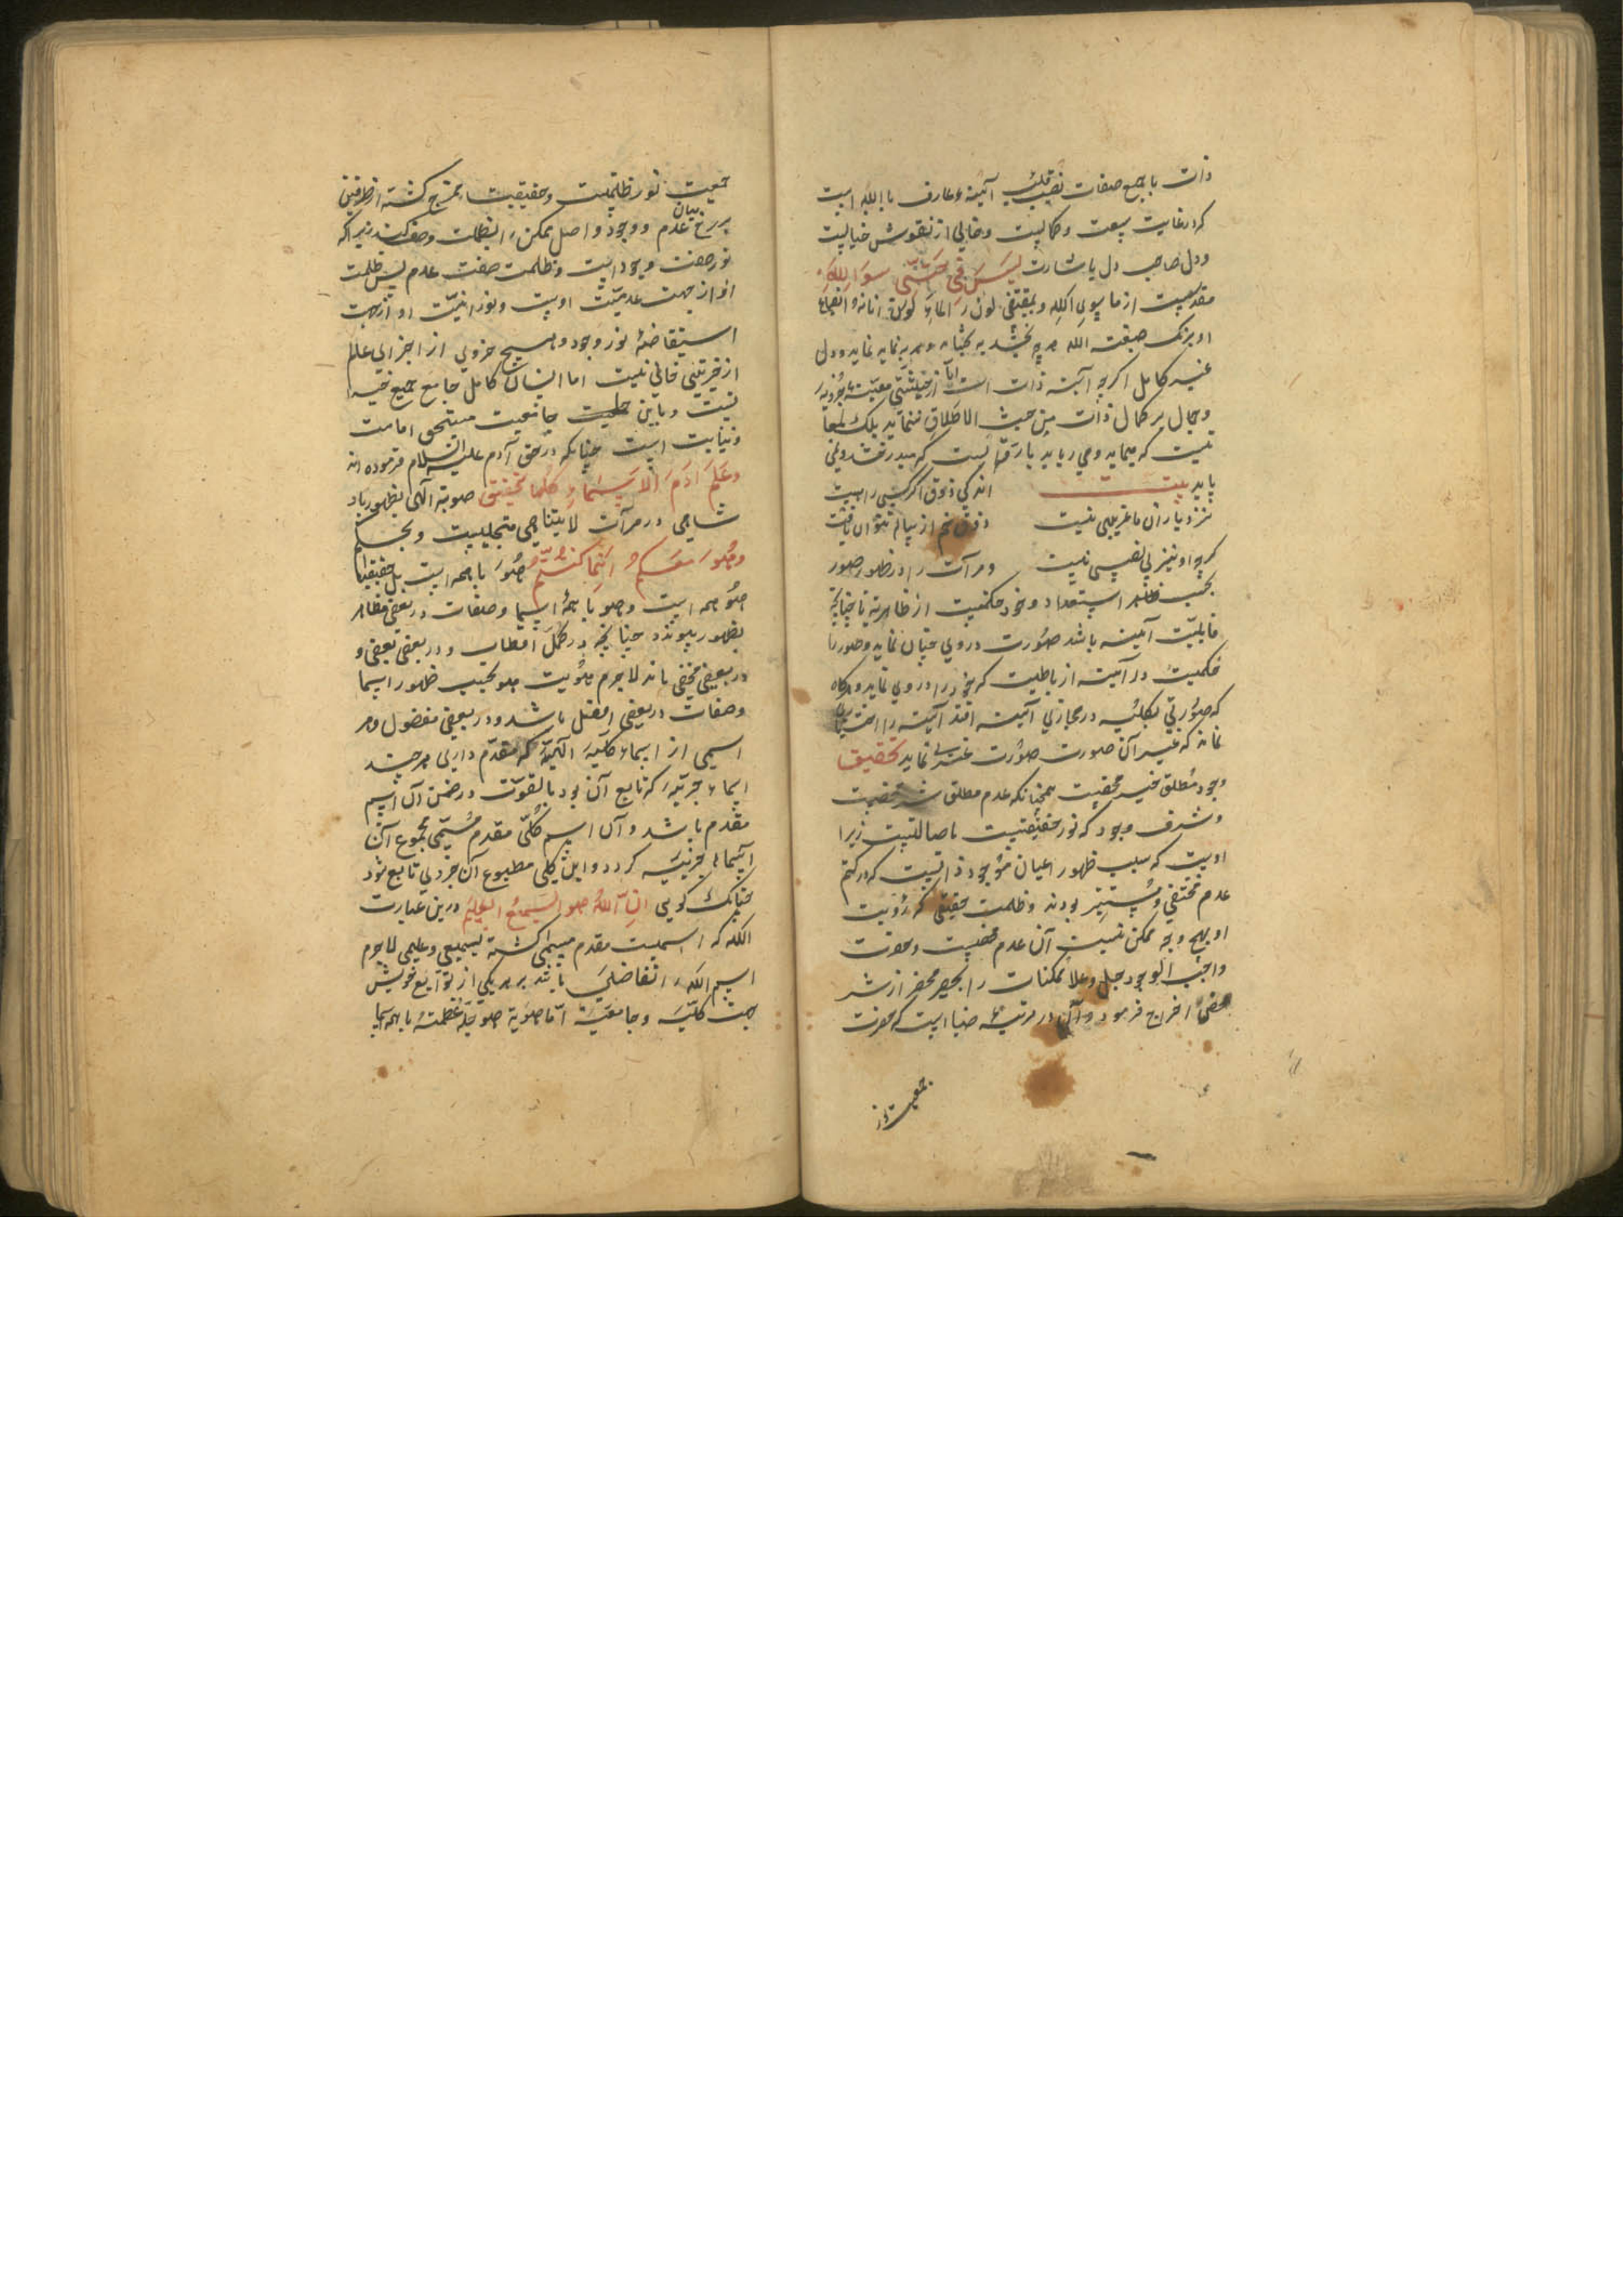 ذات با جمیع صفات نصیب قلب آئینۀ عارف باالله است
که در غایت سعت و کمالیت و خالی از نقوش خیالیت
و دل صاحب دل باشارت لیس فی جبتی سوا الله
مقدسیت از ما سوی الله و بمقتضی لون الماء لون انائه
او برنک صبغت الله هر چه بخشد به نماید نماید و دل
غیر کامل اکرچه آینه ذات است اما از حیثیتی معینه جزویه
و جمال بر کمال ذات من حیث الاطلاق ننماید بلک لمعا
نیست که مینماید و می رباید بارقه ایست که میدرخشد و نمی
پاید بیت اندکی ذوق اکر کسی راهست
نزد یاران ما غریبی نیست ذوق خم از پیاله نتوان یافت
کرچه او نیز بی نصیبی نیست و مرآت را در ظهور صور
بحسب استعداد و خود حکمیست از ظاهریه تا چنانچه
قابلیت آینه باشد صورت در وی چنان نماید و صور را
حکمیت در آینه از باطنیت که خود را در وی نماید و هرکاه
که صورتی بکلیه در محاذی آئینه افتد آئینه را اختیاری
نماند که غیر آن صورت صورت غیری نماید تحقیق
وجود مطلق خیر محضیت همچنانکه عدم مطلق شر محضیت
و شرف وجود که نور حقیقتیت باصالتیت زیرا
اوست که سبب ظهور اعیان موجود ذاتیست که در کتم
عدم مختفی و مستتر بودند و ظلمت حقیقی که رؤیت
او بهیچ وجه ممکن نیست آن عدم محضیت و حضرت
واجب الوجود جل و علا ممکنات را بخیر محض از شر
محض اخراج فرمود و آن در مرتبۀ ضیا است که حضرت
جمعیت نور
جمعیت نور ظلمتیت و حقیقیت ممتزج کشته از طرفین
برزخ میان عدم و وجود و اصل ممکن را بظلمت وصف کنند زیرا که
نور صفت وجود است و ظلمت صفت عدم پس ظلمت
او از جهت عدمیت اوست و نورانیت او از جهت
استفاضۀ نور وجود و هیچ جزوی از اجزای عالم
از خیریتی خالی نیست اما انسان کامل جامع جمیع خیرا
تست و باین جامعیت مستحق امامت
و نیابت است چنانکه در حق آدم علیه السلام فرموده اند
و علم آدم الاسماء کلها تحقیق هویة الهی بظهور باد
شاهی در مرآت لایتناهی متجلیست و بحکم
و هو معکم اینما کنتم هو با همه است بل حقیقتا
هو همه است و هو با همۀ اسما و صفات در بعضی مظاهر
بظهور پیوندد چنانچه در کمل اقطاب و در بعضی بعضی و
در بعضی مخفی ماند لاجرم هویت هو بحسب ظهور اسما
و صفات در بعضی افضل باشد و در بعضی مفضول و هر
اسمی از اسماء کلیه الهیه که مقدم داری هر چند
اسماء جزییه که تابع آن بود بالقوت در ضمن آن اسم
مقدم باشد و آن اسم کلی مقدم مسمی مجموع آن
اسماء جزییه کردد و این کلی مطبوع آن جزوی تابع شود
چنانک کویی ان الله هو السمیع العلیم درین عبارت
الله که اسمیت مقدم مسمی کشته بسمیعی و علیمی لاجرم
اسم الله را تفاضلی باشد بر هر یکی از توابع خویش
بجهت کلیه و جامعیت اما هویة هو جلت عظمته با همه اسما